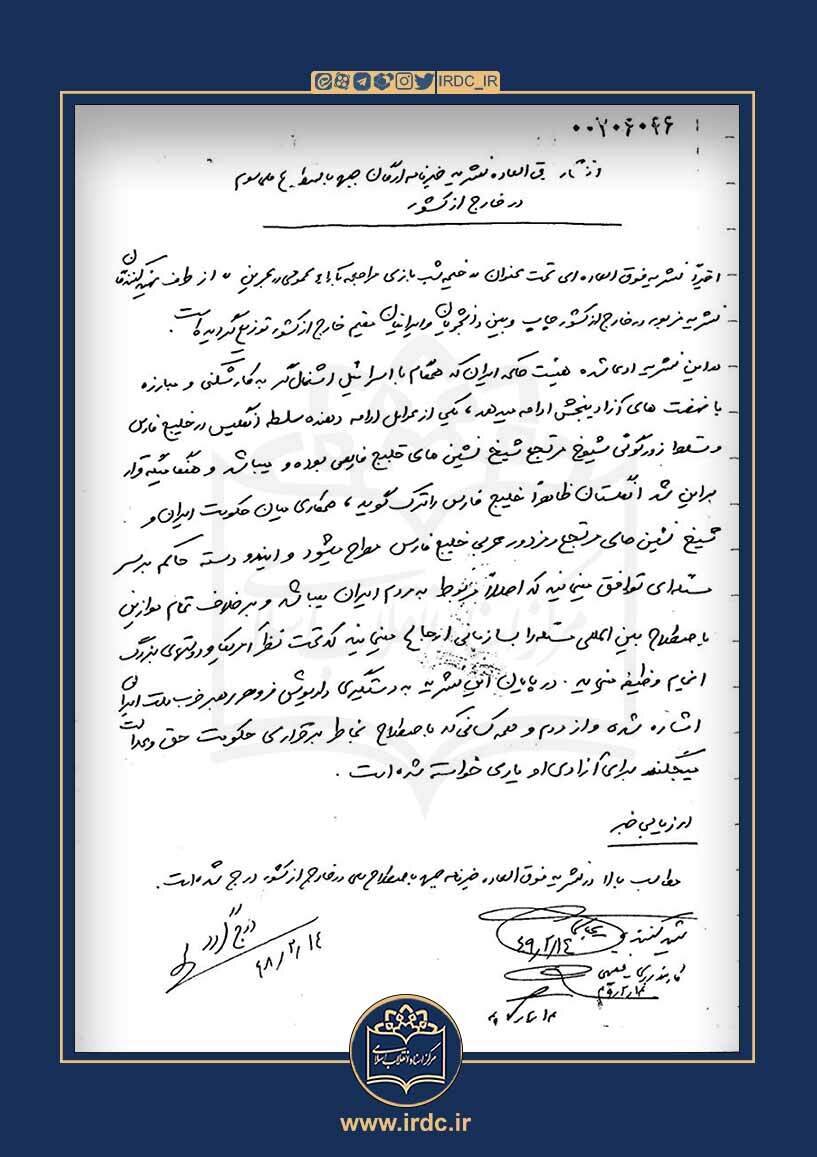 IRDC_IR
۰۰۲۰۶۰۲۶
انتشار فوق العاده نشریه خبرنامه ارگان جبهه باصطلاح ملی سوم
در خارج از کشور
اخیراً نشریه فوق العاده ای تحت عنوان « خیمه شب بازی مراجعه به آراء عمومی در بحرین » از طرف تهیه کنندگان
نشریه مزبور در خارج از کشور چاپ و بین دانشجویان و ایرانیان مقیم خارج از کشور توزیع گردیده است.
در این نشریه ادعا شده هیئت حاکمه ایران که همگام با اسرائیل اشغالگر به کارشکنی و مبارزه
با نهضت های آزادیبخش ادامه میدهد، یکی از عوامل ادامه دهنده سلطه انگلیس در خلیج فارس
و تسلط و زورگوئی شیوخ مرتجع شیخ نشین های خلیج فارس بوده و میباشد و هنگامیکه قرار
بر این شد انگلستان ظاهراً خلیج فارس را ترک گوید، همکاری میان حکومت ایران و
شیخ نشین های مرتجع و مزدور عربی خلیج فارس مطرح میشود و ایندو دسته حاکم بر سر
مسئله ای توافق مینمایند که اصلاً مربوط به مردم ایران میباشد و بر خلاف تمام موازین
باصطلاح بین المللی مسئله را بسازمانی ارجاع مینمایند که تحت نظر امریکا و دولتهای بزرگ
انجام وظیفه می نماید. در پایان این نشریه به دستگیری داریوش فروهر رهبر حزب ملت ایران
اشاره شده و از مردم و همه کسانی که باصطلاح بخاطر برقراری حکومت حق و عدالت
میجنگند برای آزادی او یاری خواسته شده است.
ارزیابی خبر
مطالب بالا در نشریه فوق العاده خبرنامه جبهه باصطلاح ملی در خارج از کشور درج شده است.
تهیه کننده
۴۹/۲/۱۴
درج گردد
۴۸/۲/۱۴
مرکز اسناد انقلاب اسلامی
www.irdc.ir